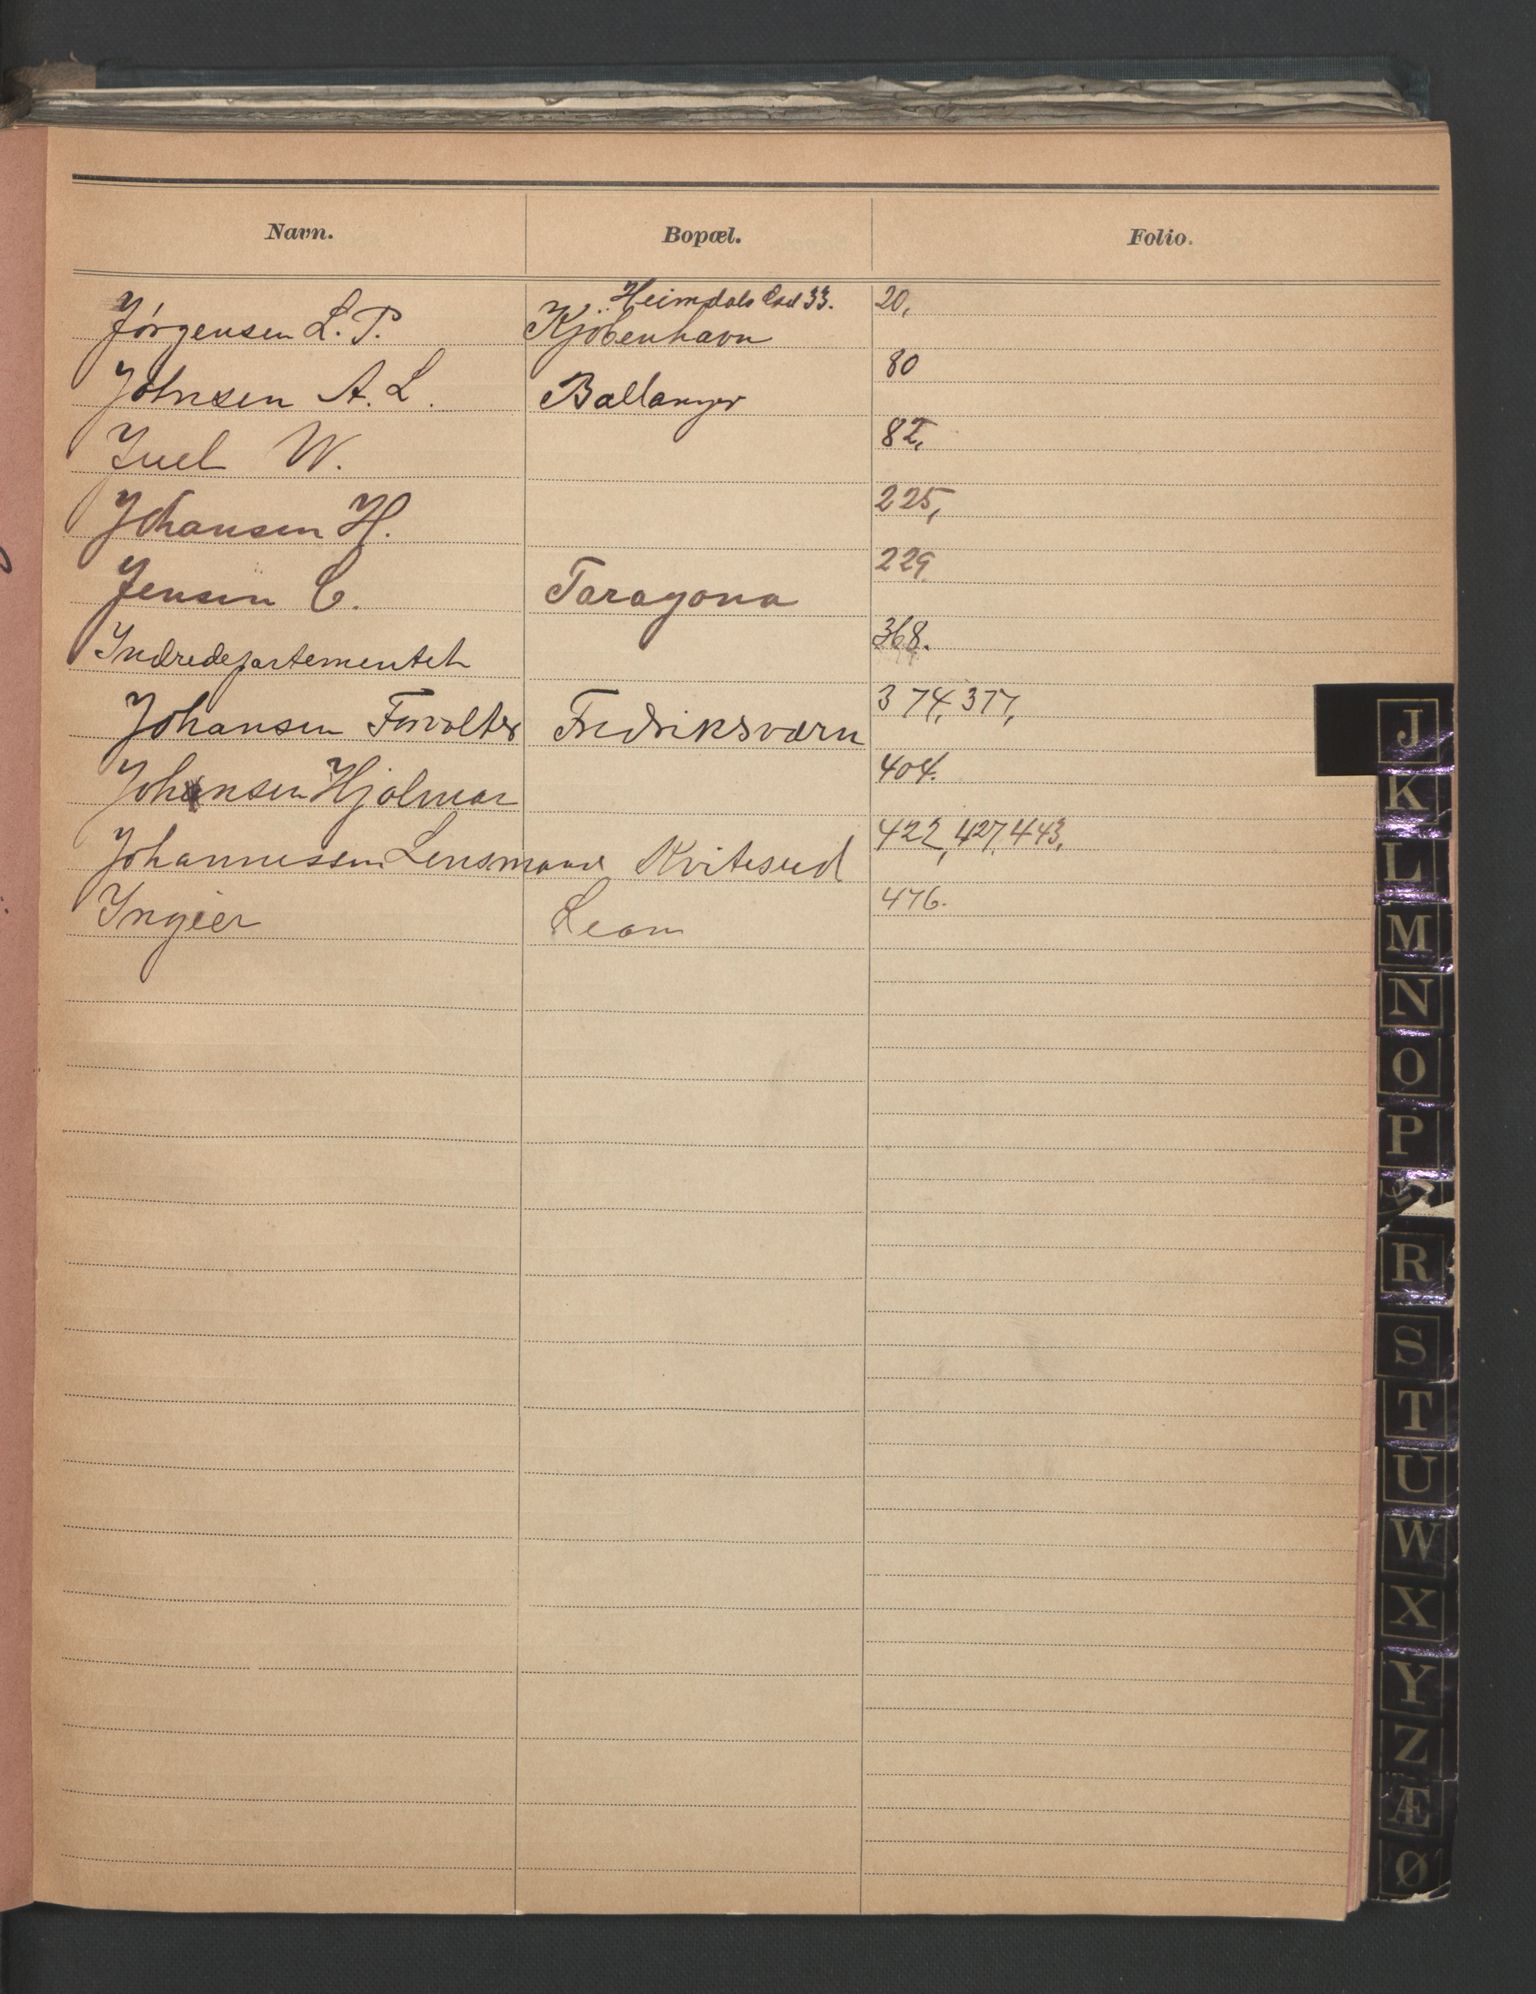 Navn. Bopæl. Folio.
Heimdals 33. 20,
Jørgensen L. P. Kjöbenhavn
80
Johnsen A. L. Ballanger
82,
Juel W.
225,
Johansen H.
229
Jensen C. Taragona
368.
Indredepartementet
374, 377,
Johansen Forvalter Fredriksværn
404.
Johansen Hjalmar
422, 427, 443,
Johannessen Lensmand Kviteseid
476.
Ingier Lean
J
K
L
M
N
O
P
R
S
T
U
W
X
Y
Z
Æ
Ø